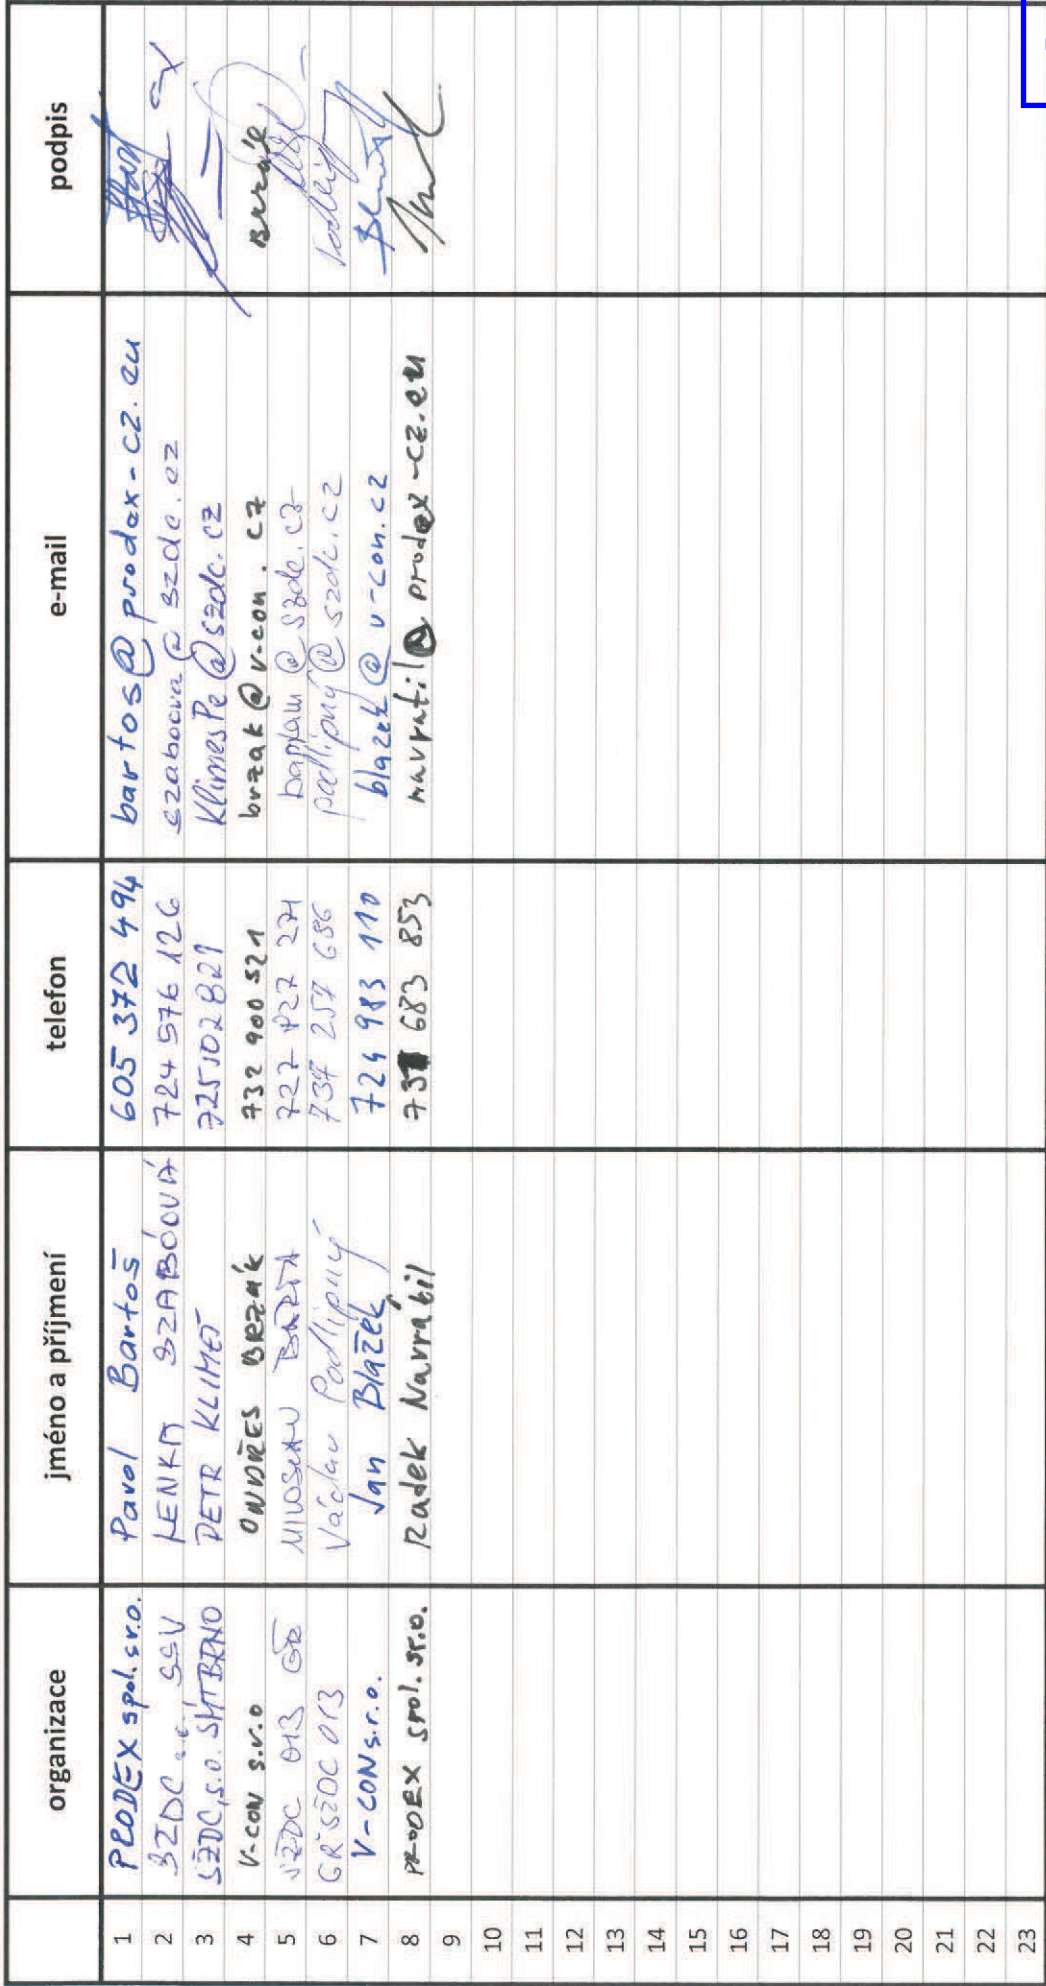 organizace jméno a příjmení telefon e-mail podpis
1 PRODEX spol. s r.o. Pavol Bartoš 605 372 494 bartos@prodex-cz.eu
2 SŽDC s.o., SSV LENKA SZABÓOVÁ 724 576 126 szaboova@szdc.cz
3 SŽDC, s.o. SMTBRNO PETR KLIMEŠ 725102821 KlimesPe@szdc.cz
4 V-CON s.r.o ONDŘEJ BRZÁK 732 900 521 brzak@v-con.cz Brzák
5 SŽDC 013 GŘ @szdc.cz
6 GŘ SŽDC 013 Václav Podlipný 737 257 686 podlipny@szdc.cz
7 V-CON s.r.o. Jan Blažek 724 983 110 blazek@v-con.cz
8 PRODEX spol. sr.o. Radek Navrátil 731 683 853 navratil@prodex-cz.eu
9
10
11
12
13
14
15
16
17
18
19
20
21
22
23